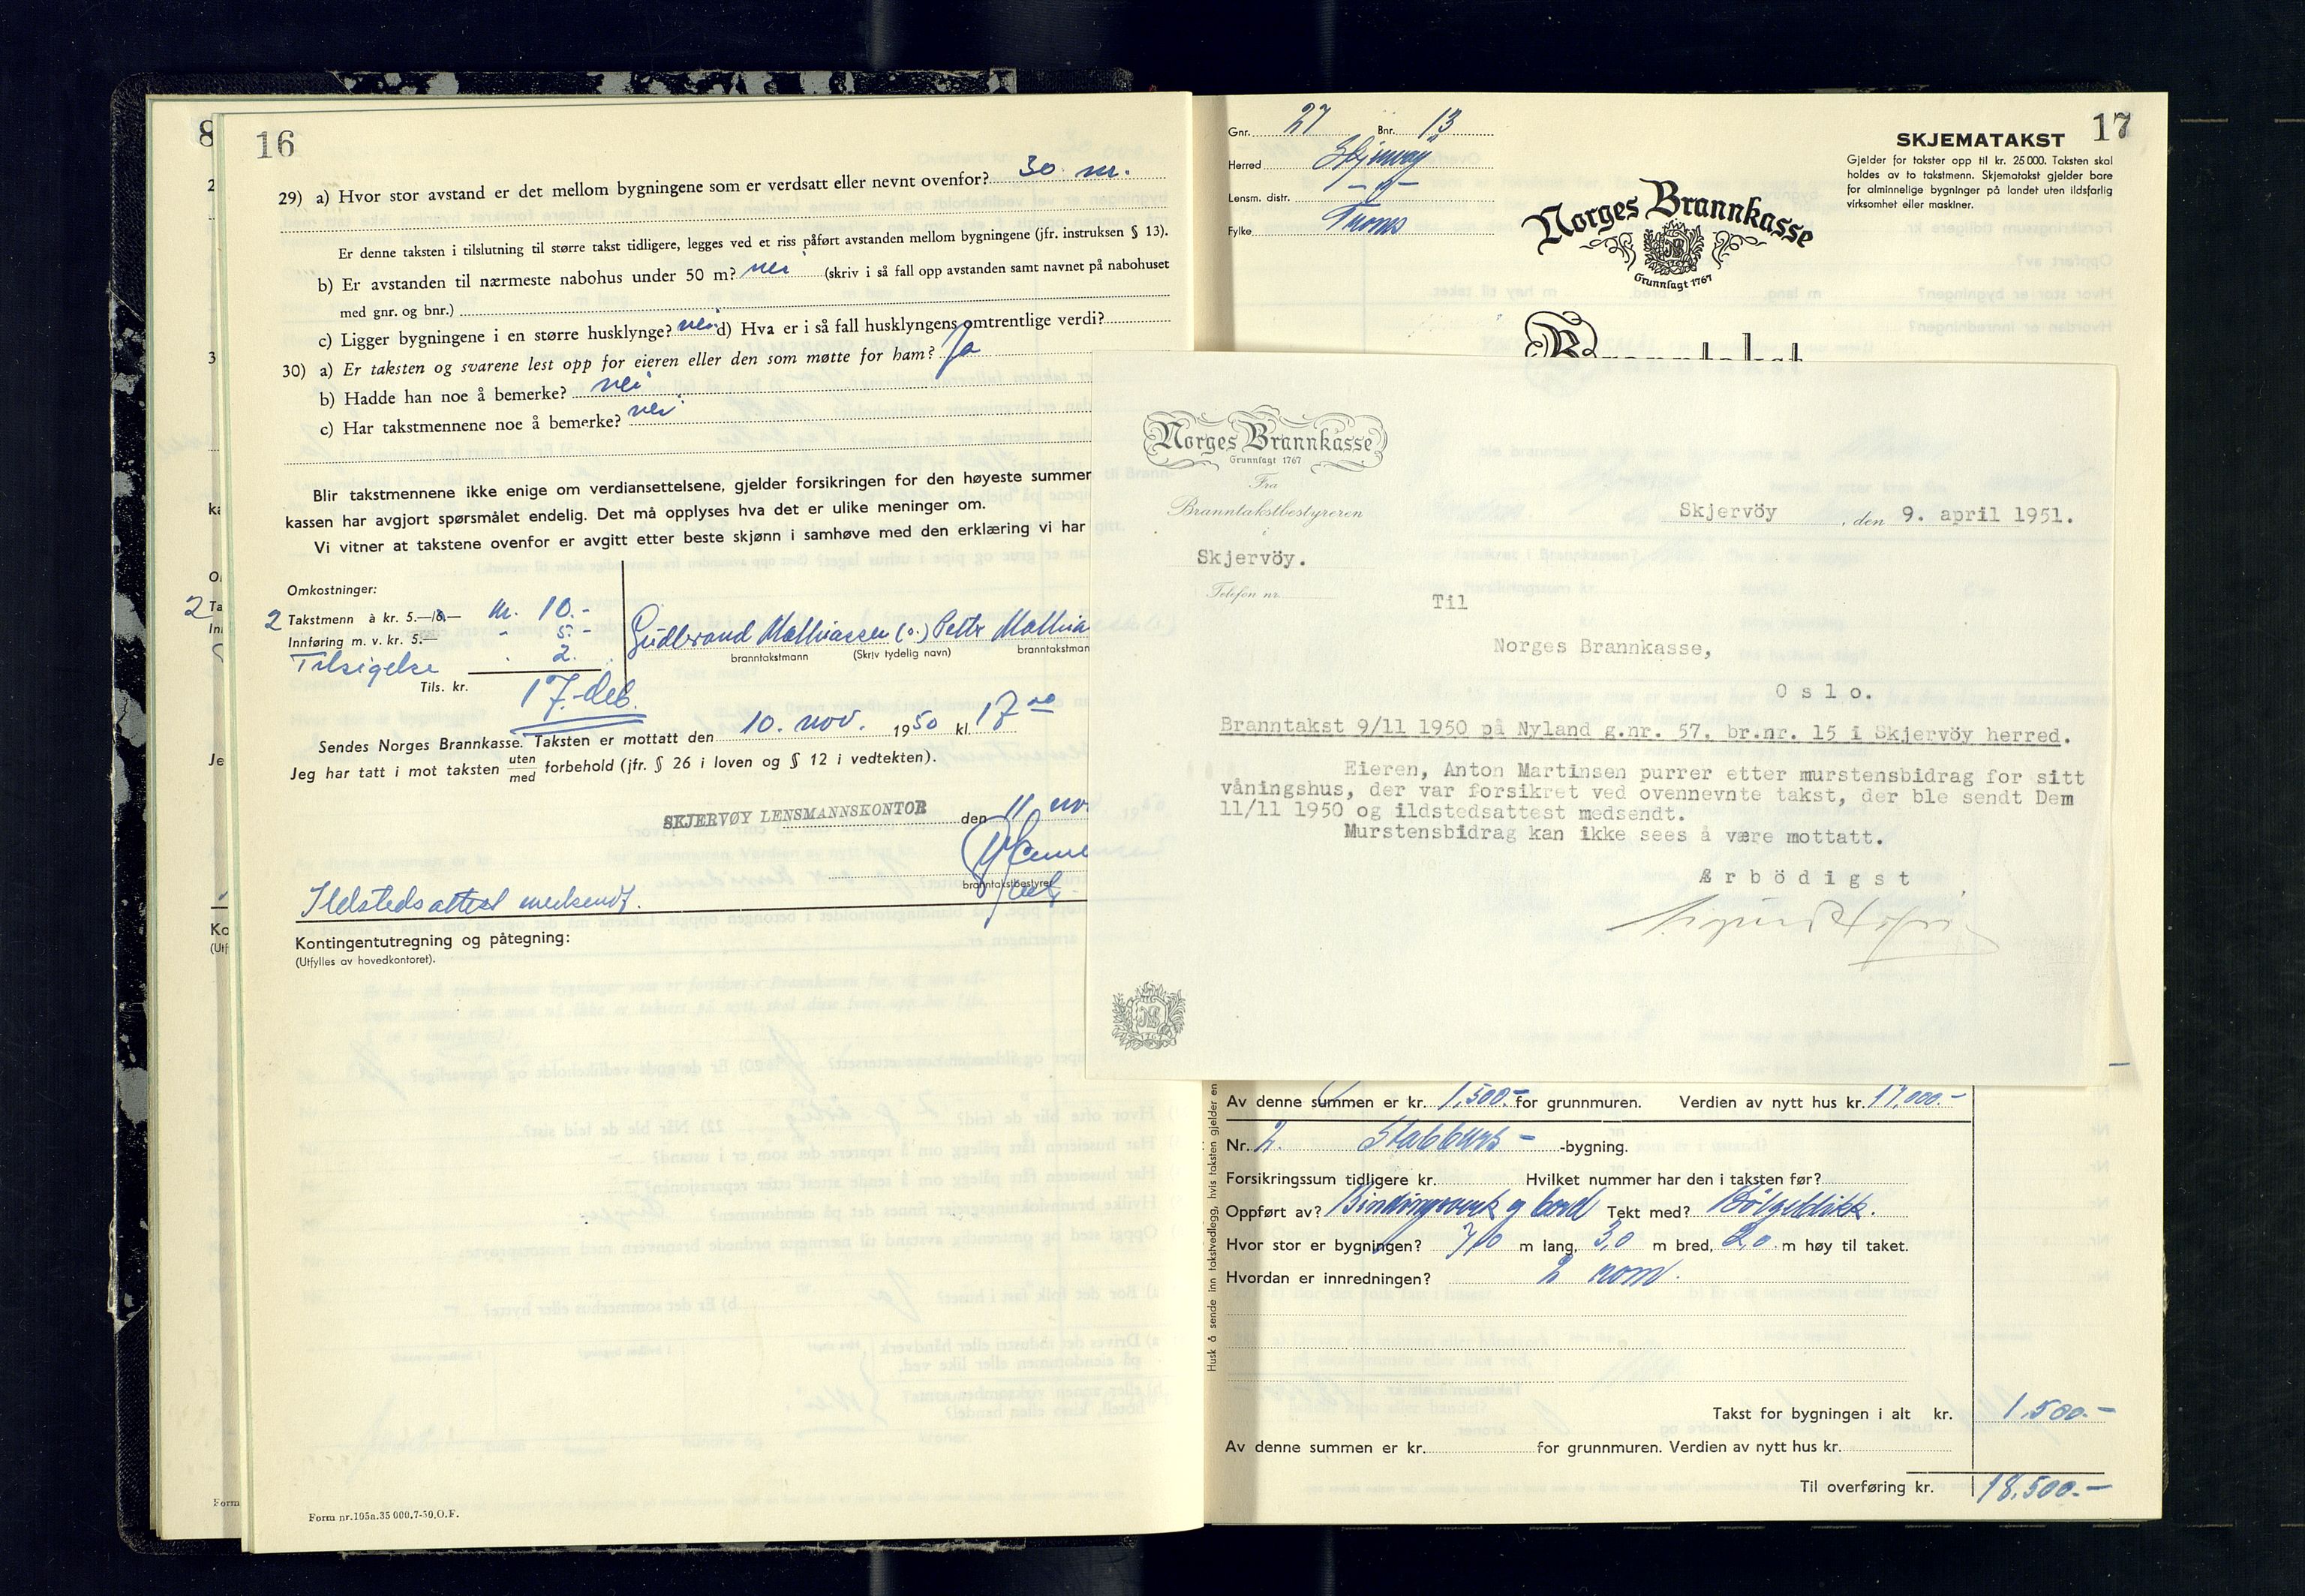 16
29) a) Hvor stor avstand er det mellom bygningene som er verdsatt eller nevnt ovenfor? 30 m.
Er denne taksten i tilslutning til større takst tidligere, legges ved et riss påført avstanden mellom bygningene (jfr. instruksen § 13).
b) Er avstanden til nærmeste nabohus under 50 m? nei (skriv i så fall opp avstanden samt navnet på nabohuset
med gnr. og bnr.)
c) Ligger bygningene i en større husklynge? nei d) Hva er i så fall husklyngens omtrentlige verdi?
30) a) Er taksten og svarene lest opp for eieren eller den som møtte for ham? Ja
b) Hadde han noe å bemerke? nei
c) Har takstmennene noe å bemerke? nei
Blir takstmennene ikke enige om verdiansettelsene, gjelder forsikringen for den høyeste summer
kassen har avgjort spørsmålet endelig. Det må opplyses hva det er ulike meninger om.
Vi vitner at takstene ovenfor er avgitt etter beste skjønn i samhøve med den erklæring vi har
Omkostninger:
2 Takstmenn à kr. 5.— kr. 10.-
Innføring m. v. kr. 5.— - 5.-
Tilsigelse - 2.
Tils. kr. 17.- deb.
Gudbrand Mathiassen (s.) Petter Mathia
branntakstmann (Skriv tydelig navn) branntakstman
Sendes Norges Brannkasse. Taksten er mottatt den 10. nov. 1950 kl. 17 00
Jeg har tatt i mot taksten uten/med forbehold (jfr. § 26 i loven og § 12 i vedtekten).
SKJERVØY LENSMANNSKONTOR den 11 nov
branntakstbestyrer
Ildstedsattest medsendt.
Kontingentutregning og påtegning:
(Utfylles av hovedkontoret).
Form nr. 105a. 35 000. 7-50. O.F.
17
Gnr. 27 Bnr. 13
Herred Skjervøy
Lensm. distr. -"-
Fylke Troms
SKJEMATAKST
Gjelder for takster opp til kr. 25 000. Taksten skal
holdes av to takstmenn. Skjematakst gjelder bare
for alminnelige bygninger på landet uten ildsfarlig
virksomhet eller maskiner.
Norges Brannkasse
Grunnlagt 1767
Branntakst
Norges Brannkasse
Grunnlagt 1767
Fra
Branntakstbestyreren
i
Skjervöy.
Telefon nr.
Skjervöy, den 9. april 1951.
Til
Norges Brannkasse,
Oslo.
Branntakst 9/11 1950 på Nyland g.nr. 57. br.nr. 15 i Skjervöy herred.
Eieren, Anton Martinsen purrer etter murstensbidrag for sitt
våningshus, der var forsikret ved ovennevnte takst, der ble sendt Dem
11/11 1950 og ildstedsattest medsendt.
Murstensbidrag kan ikke sees å være mottatt.
Ærbödigst
Husk å sende inn takstvedlegg, hvis taksten gjelder en
Av denne summen er kr. 1.500.- for grunnmuren. Verdien av nytt hus kr. 17.000.-
Nr. 2. Stabburs- -bygning.
Forsikringssum tidligere kr. Hvilket nummer har den i taksten før?
Oppført av? Bindingsverk og bord Tekt med? Bölgeblikk.
Hvor stor er bygningen? 7,0 m lang, 3,0 m bred, 2,0 m høy til taket.
Hvordan er innredningen? 2 rom.
Takst for bygningen i alt kr. 1.500.-
Av denne summen er kr. for grunnmuren. Verdien av nytt hus kr.
Til overføring kr. 18.500.-